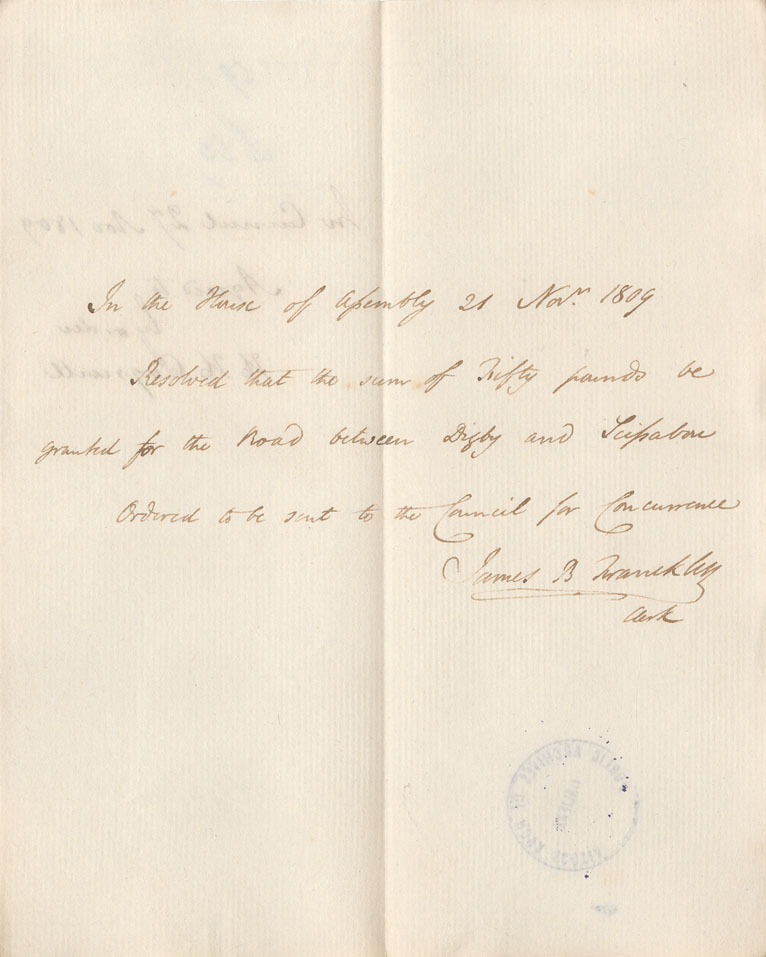 In the House of Assembly 21 Novr. 1809
Resolved that the sum of Fifty pounds be
granted for the Road between Digby and Scissaboo
Ordered to be sent to the Council for Concurrence
James B Franckly
Clerk